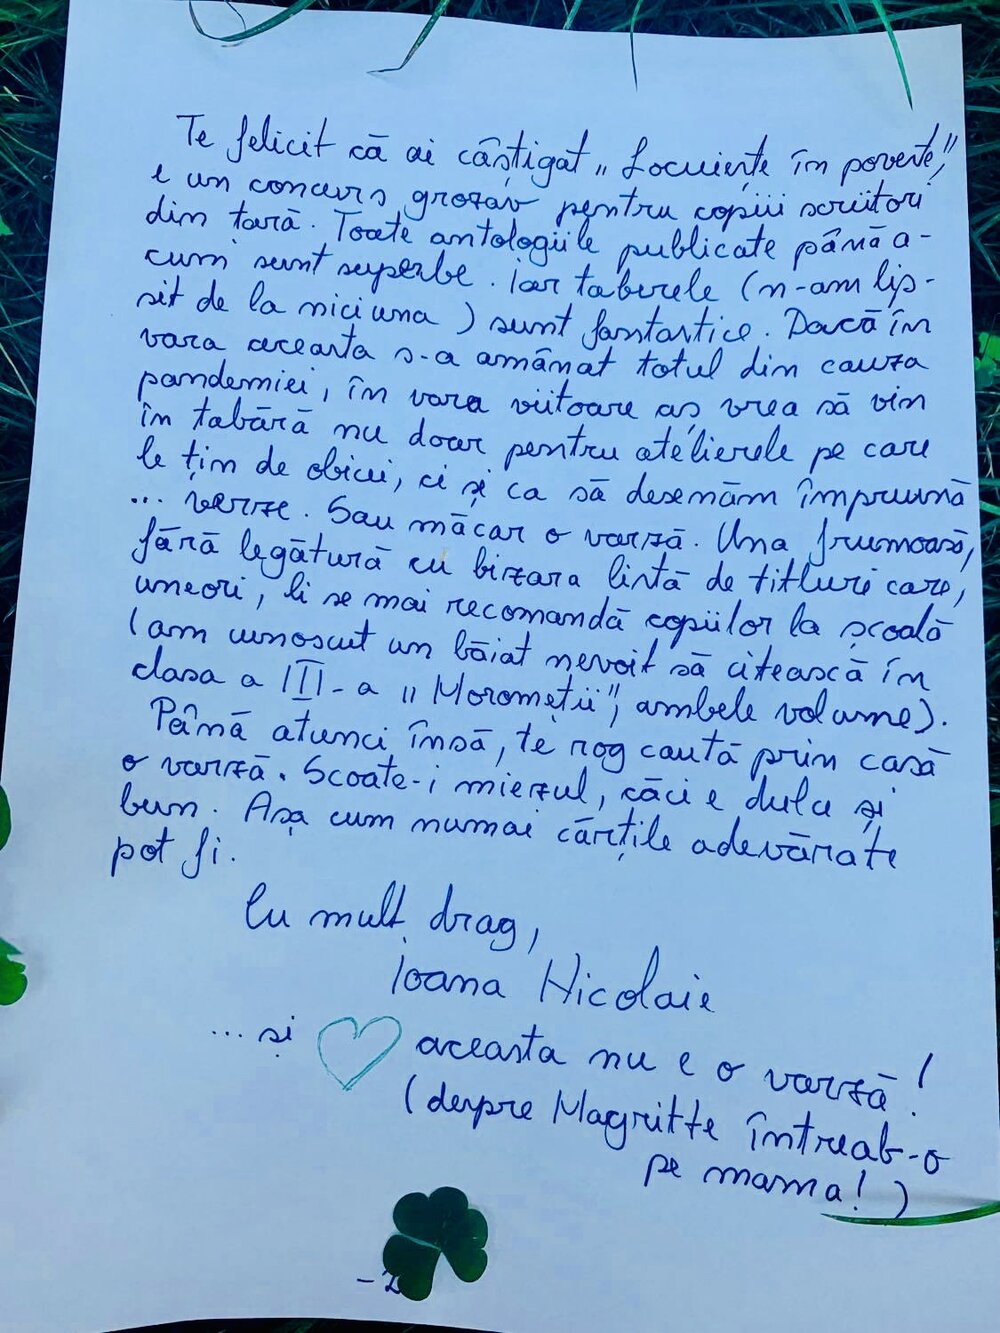 Te felicit că ai câștigat „Locuiește în poveste”,
e un concurs grozav pentru copiii scriitori
din țară. Toate antologiile publicate până a-
cum sunt superbe. Iar taberele (n-am lip-
sit de la niciuna) sunt fantastice. Dacă în
vara aceasta s-a amânat totul din cauza
pandemiei, în vara viitoare aș vrea să vin
în tabără nu doar pentru atelierele pe care
le țin de obicei, ci și ca să desenăm împreună
... verze. Sau măcar o varză. Una frumoasă,
fără legătură cu bizara listă de titluri care,
uneori, li se mai recomandă copiilor la școală
(am cunoscut un băiat nevoit să citească în
clasa a III-a „Moromeții”, ambele volume).
Până atunci însă, te rog caută prin casă
o varză. Scoate-i miezul, căci e dulce și
bun. Așa cum numai cărțile adevărate
pot fi.
Cu mult drag,
Ioana Nicolaie
... și ♡ aceasta nu e o varză!
(despre Magritte întreab-o
pe mama!)